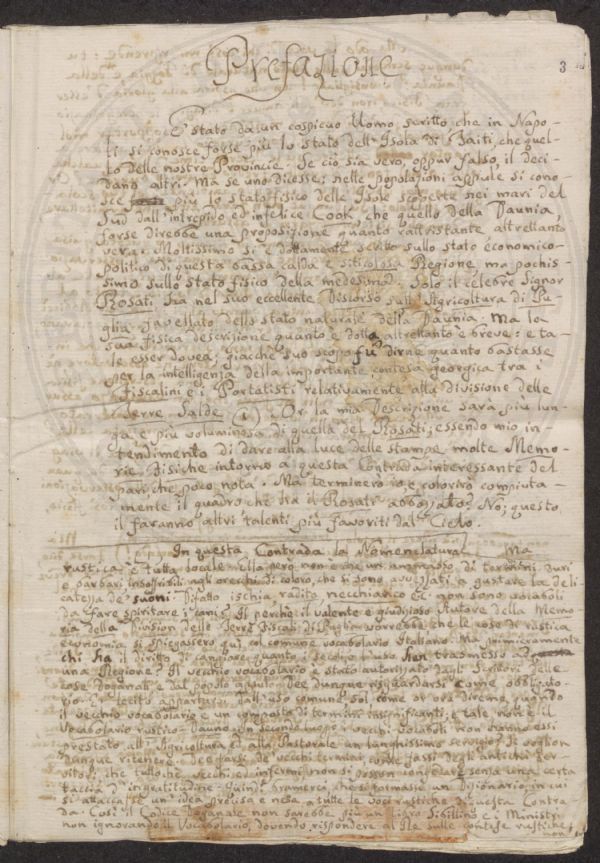 Prefazione
3
E' stato da un cospicuo Uomo scritto che in Napo-
li si conosce forse più lo stato dell'Isola di Taiti, che quel-
lo delle nostre Provincie. Se ciò sia vero, oppur falso, il deci-
dano altri. Ma se uno dicesse: nelle popolazioni appule si cono-
sce più lo stato fisico delle Isole scoperte nei mari del
Sud dall'intrepido ed infelice Cook, che quello della Daunia,
forse direbbe una proposizione quanto rattristante altrettanto
vera. Moltissimo si è dottamente scritto sullo stato economico-
politico di questa bassa calda e siticolosa Regione ma pochis-
simo sullo stato fisico della medesima. Solo il celebre Signor
Rosati ha nel suo eccellente Discorso sull'Agricoltura di Pu-
glia favellato dello stato naturale della Daunia. Ma la
sua fisica descrizione quanto è dotta altrettanto è breve: e ta-
le esser dovea, giacchè suo scopo fù dirne quanto bastasse
per la intelligenza della importante contesa georgica tra i
Fiscalini e i Portatisti relativamente alla divisione delle
Terre Salde (1). Or la mia Descrizione sarà più lun-
ga e più voluminosa di quella del Rosati; essendo mio in-
tendimento di dare alla luce delle stampe molte Memo-
rie Fisiche intorno a questa Contrada interessante del
pari che poco nota. Ma terminerò io e colorirò compiuta-
mente il quadro che ha il Rosati abbozzato? No; questo
il faranno altri talenti più favoriti dal Cielo.
In questa Contrada la Nomenclatura Ma
rustica è tutta locale ella però non è che un ammasso di termini duri
e barbari insoffribili negli orecchi di coloro, che si sono avvezzati a gustare la deli-
catezza de' suoni. Difatto ischia radito nechiarico &c. non sono vocaboli
da fare spiritare i cani? Il perchè il valente e giudizioso Autore della Memo-
ria della Division delle Terre Fiscali di Puglia vorrebbe che le cose di rustica
economia si spiegassero quì col comune vocabolario Italiano. Ma primieramente
chi ha il diritto di cangiare quanto i secoli e l'uso han trasmesso ad
una Regione? Il vecchio vocabolario è stato autorizzato dagli Scrittori delle
cose Doganali e dal popolo appulo. Dee dunque risguardarsi come obbligato-
rio. È lecito appartarsi dall'uso comune sol, come or ora diremo, quando
il vecchio vocabolario è un composto di termini insignificanti, e tale non è il
Vocabolario rustico-Dauno. In secondo luogo i vecchi vocaboli non hanno essi
prestato all'Agricoltura ed alla Pastorale un lunghissimo servigio? Si voglion
dunque ritenere. Dee farsi de' vecchi termini, come fassi degli antichi Ser-
vitori, che tuttochè vecchi ed infermi non si posson congedare senza una certa
taccia d'ingratitudine. Quindi bramerei, che si formasse un Dizionario in cui
si attaccasse un'idea precisa e netta a tutte le voci rustiche di questa Contra-
da. Così il Codice Doganale non sarebbe più un libro Sibillino e i Ministri
non ignorando il Vocabolario, dovendo rispondere al Re sulle contese rustiche,
non